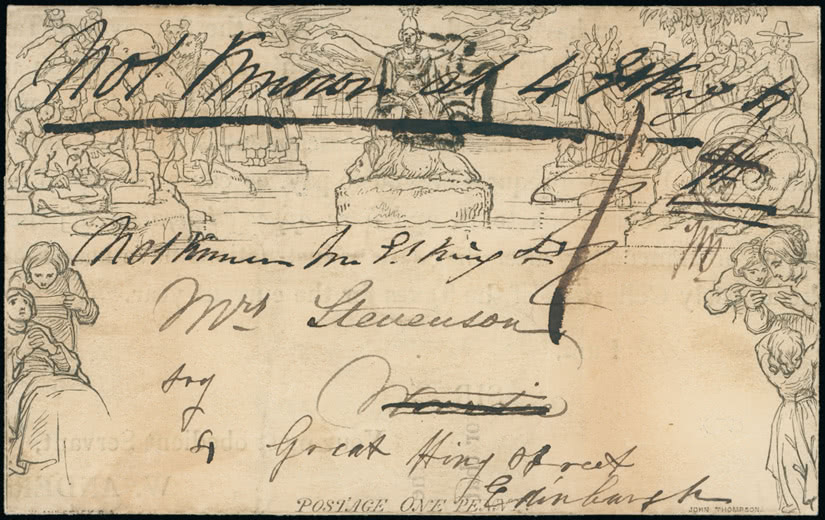 Not Known at 4 Gt King St
Not Known in Gt King St
Mrs Stevenson
4 Great King Street
Edinburgh
POSTAGE ONE PENNY
JOHN THOMPSON
obedient Servant,
W. ANDER